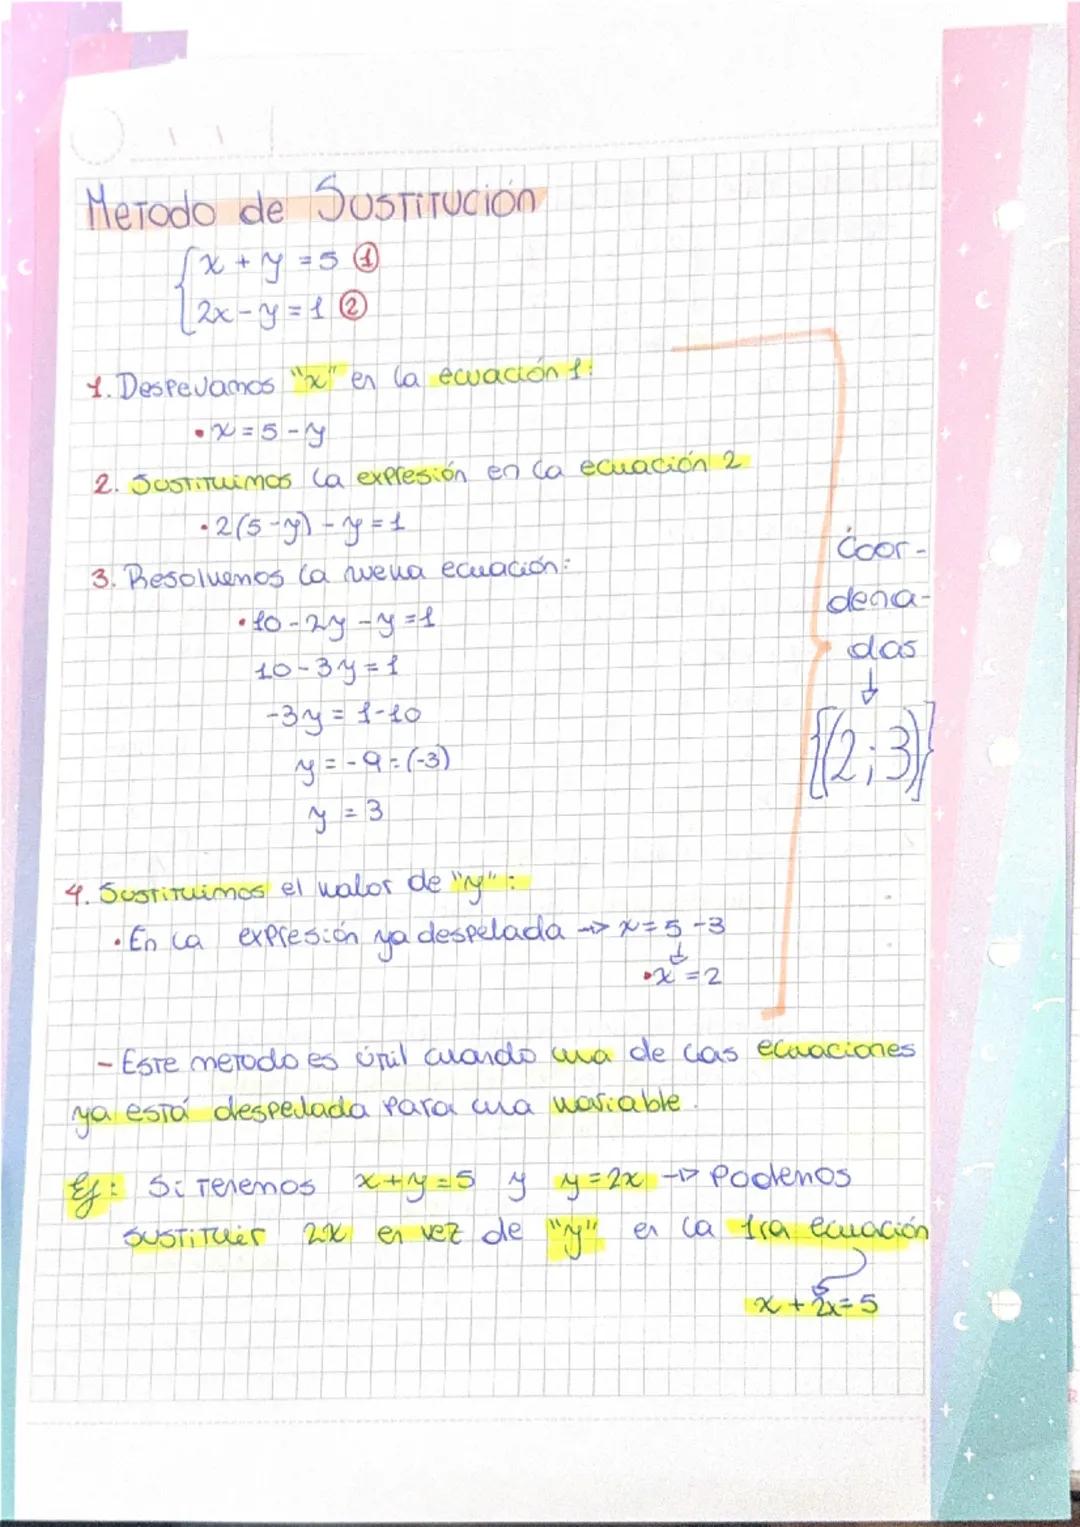 Metodo de Sustitución
x + y = 5 ①
2x - y = 1 ②
1. Despejamos "x" en la ecuación 1:
• x = 5 - y
2. Sustituimos la expresión en la ecuación 2
• 2(5-y) - y = 1
3. Resolvemos la nueva ecuación:
• 10 - 2y - y = 1
10 - 3y = 1
-3y = 1-10
y = -9 : (-3)
y = 3
4. Sustituimos el valor de "y":
• En la expresión ya despejada → x = 5 - 3
• x = 2
Coor-
dena-
das
↓
{(2;3)}
- Este metodo es útil cuando una de las ecuaciones
ya está despejada para una variable.
Ej: Si tenemos x+y=5 y y=2x → Podemos
sustituir 2x en vez de "y" en la 1ra ecuación
x + 2x = 5